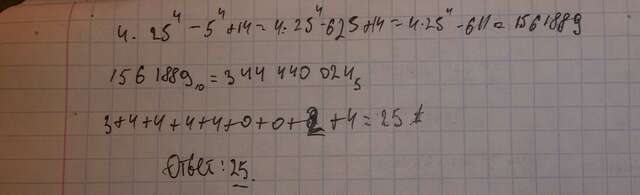 4 · 25⁴ - 5⁴ + 14 = 4 · 25⁴ - 625 + 14 = 4 · 25⁴ - 611 = 1561889
1561889₁₀ = 3444400245
3+4+4+4+4+0+0+2+4 = 25
Ответ: 25.